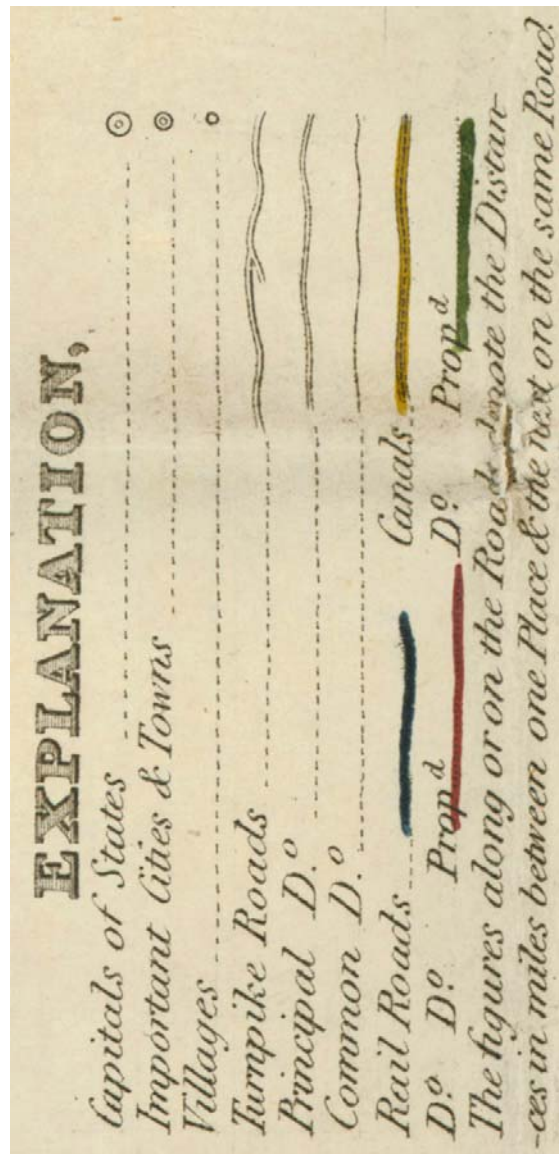 EXPLANATION,
Capitals of States
Important Cities & Towns
Villages
Turnpike Roads
Principal D.º
Common D.º
Rail Roads Canals
Dº Dº Propᵈ Dº Propᵈ
The figures along or on the Roads denote the Distan-
-ces in miles between one Place & the next on the same Road.